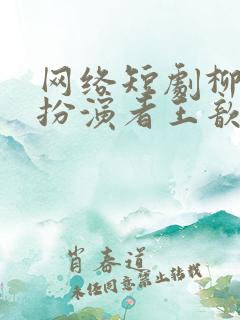 网络短劇柳
扮演者王歆
肖春道
未经同意禁止转载